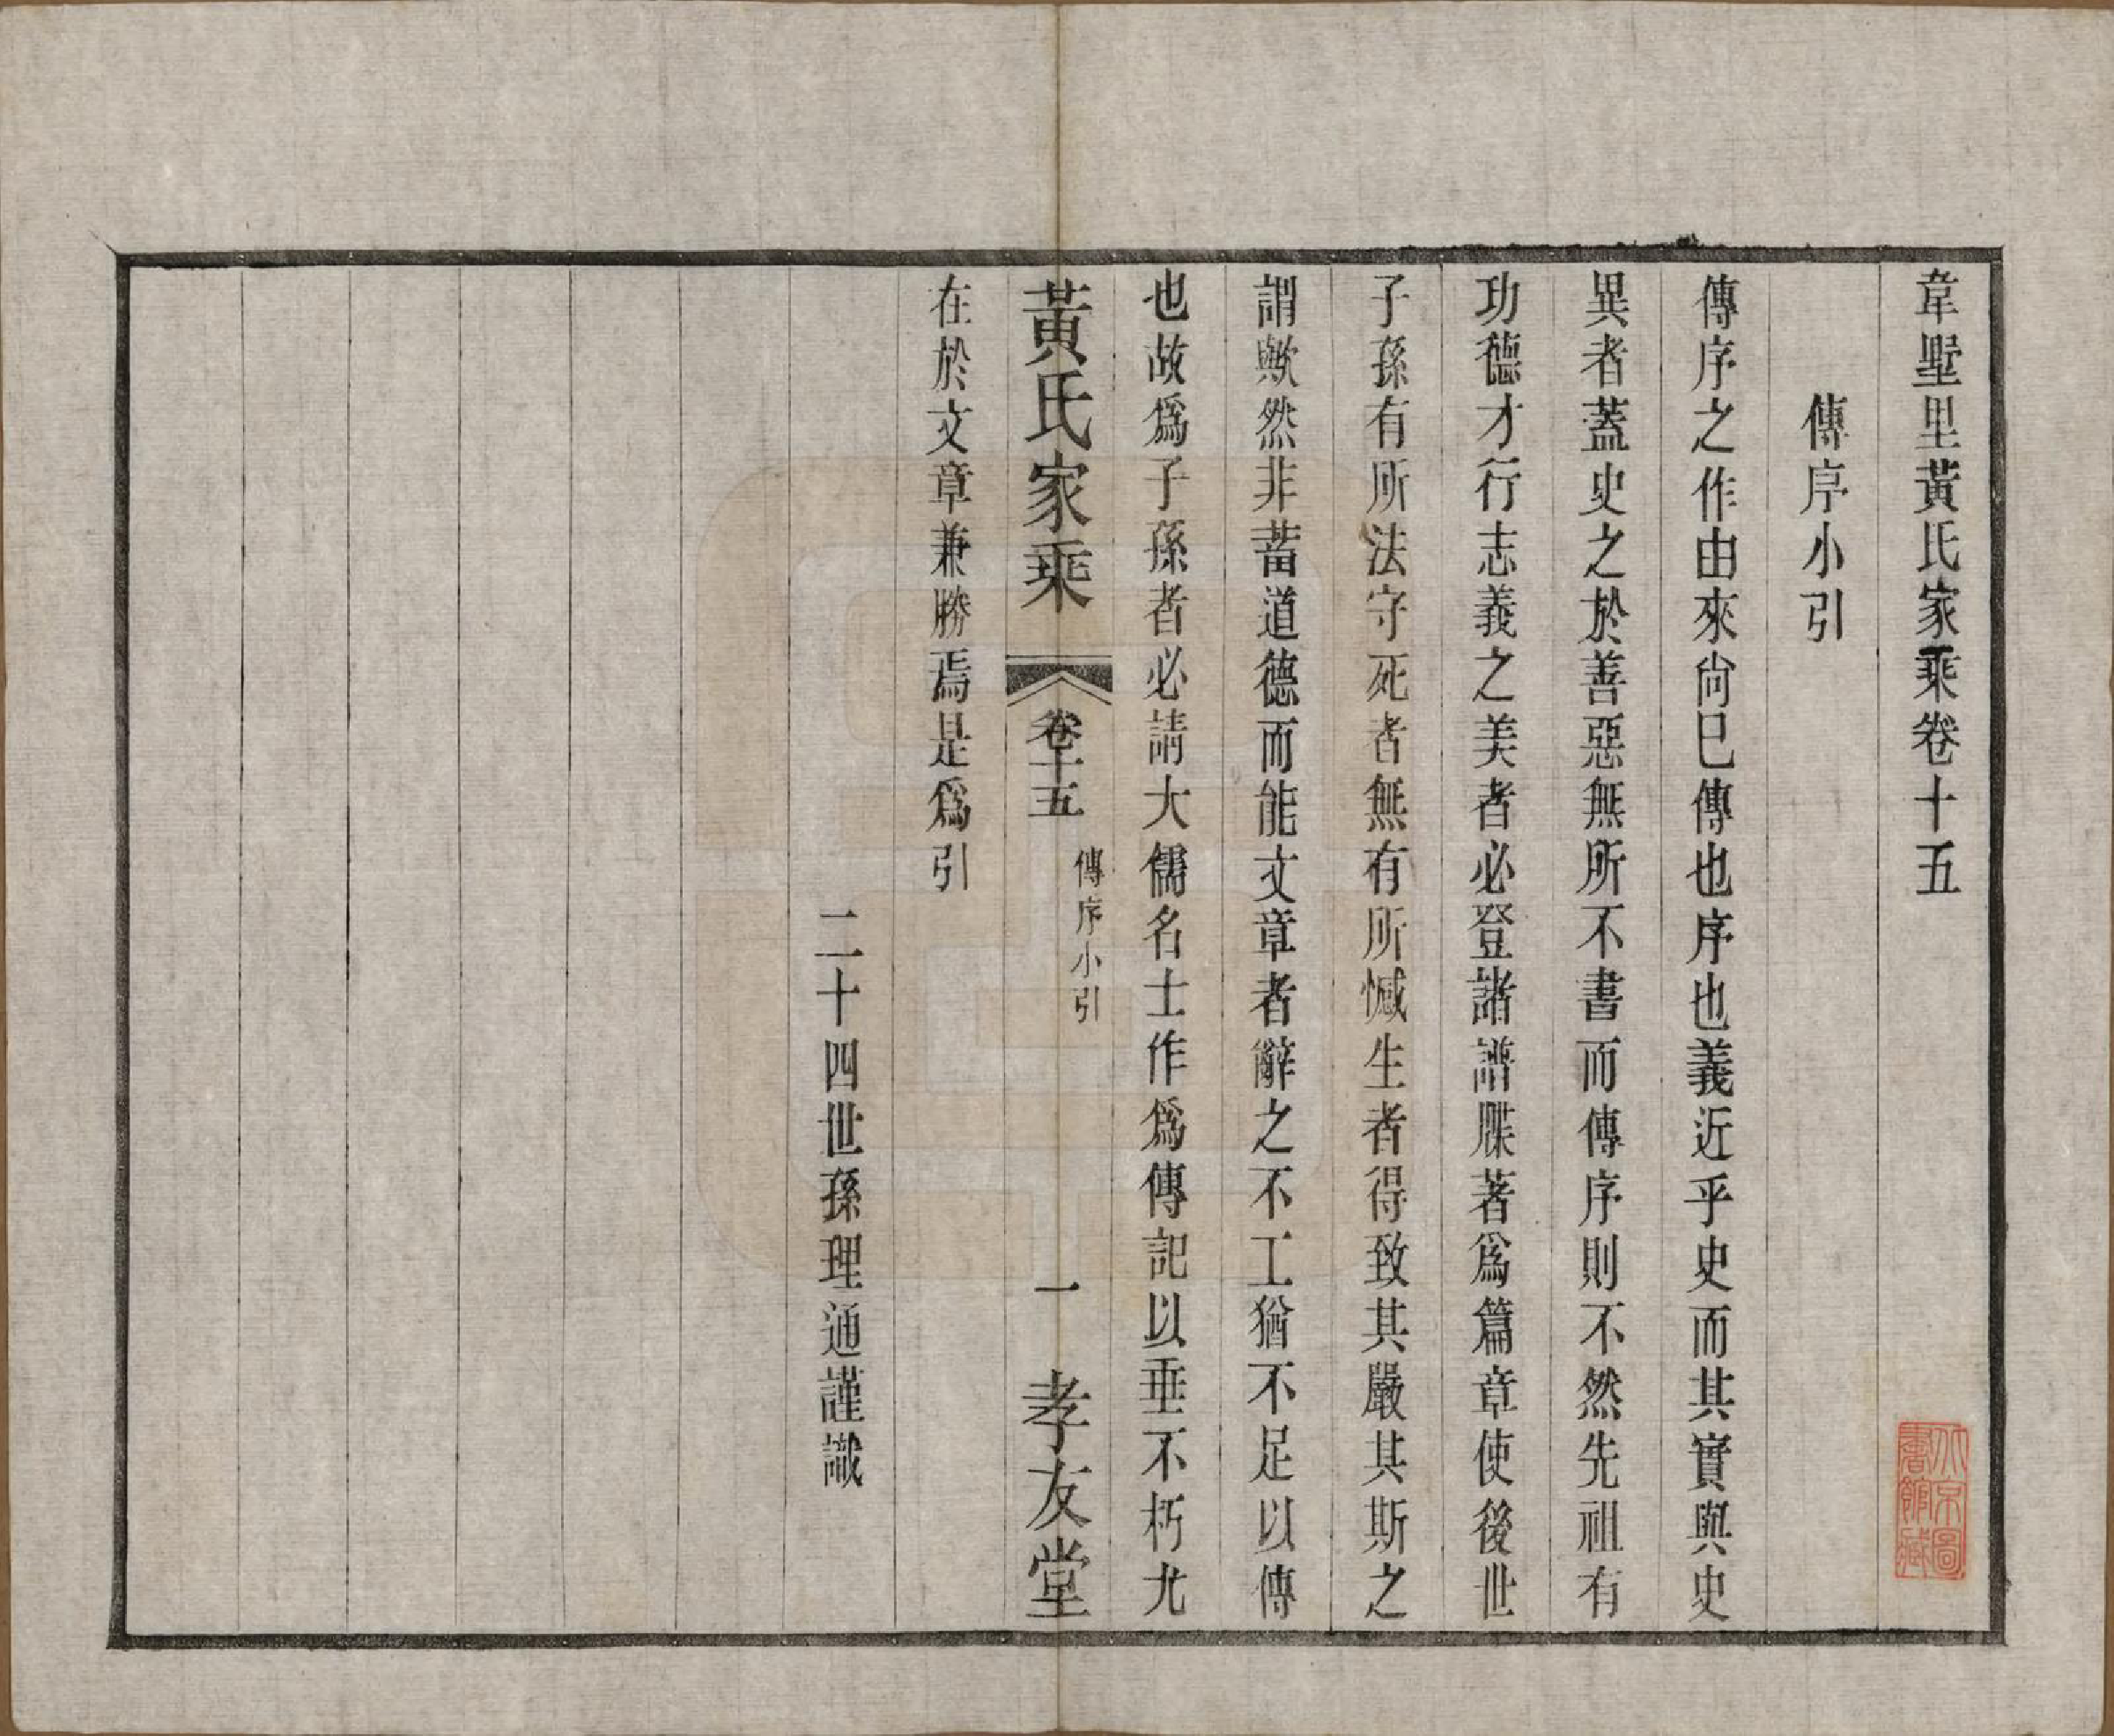 韋墅里黃氏家乘卷十五
傳序小引
傳序之作由來尙已傳也序也義近乎史而其實與史
異者蓋史之於善惡無所不書而傳序則不然先祖有
功德才行志義之美者必登諸譜牒著爲篇章使後世
子孫有所法守死者無有所憾生者得致其嚴其斯之
謂歟然非蓄道德而能文章者辭之不工猶不足以傳
也故爲子孫者必請大儒名士作爲傳記以垂不朽尤
黃氏家乘
卷十五
傳序小引
一
孝友堂
在於文章兼勝焉是爲引
二十四世孫理通謹識
北京圖
書館藏